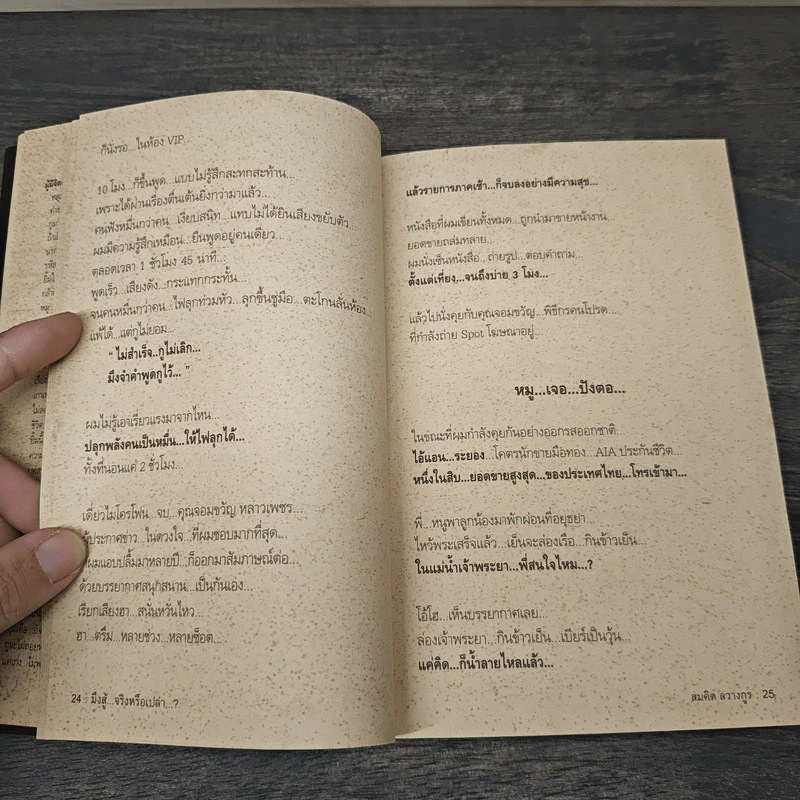 ก็นั่งรอ...ในห้อง VIP...
10 โมง...ก็ขึ้นพูด...แบบไม่รู้สึกสะทกสะท้าน...
เพราะได้ผ่านเรื่องตื่นเต้นยิ่งกว่ามาแล้ว...
คนฟังหมื่นกว่าคน...เงียบสนิท...แทบไม่ได้ยินเสียงขยับตัว...
ผมมีความรู้สึกเหมือน...ยืนพูดอยู่คนเดียว...
ตลอดเวลา 1 ชั่วโมง 45 นาที...
พูดเร็ว...เสียงดัง...กระแทกกระทั้น...
จนคนหมื่นกว่าคน...ไฟลุกท่วมหัว...ลุกขึ้นชูมือ...ตะโกนลั่นห้อง...
แพ้ได้...แต่กูไม่ยอม...
" ไม่สำเร็จ..กูไม่เลิก...
มึงจำคำพูดกูไว้... "
ผมไม่รู้เอาเรี่ยวแรงมาจากไหน...
ปลุกพลังคนเป็นหมื่น...ให้ไฟลุกได้...
ทั้งที่นอนแค่ 2 ชั่วโมง...
เดี่ยวไมโครโฟน...จบ...คุณจอมขวัญ หลาวเพชร...
ผู้ประกาศข่าว...ในดวงใจ...ที่ผมชอบมากที่สุด...
ที่ผมแอบปลื้มมาหลายปี...ก็ออกมาสัมภาษณ์ต่อ...
ด้วยบรรยากาศสนุกสนาน...เป็นกันเอง...
เรียกเสียงฮา...สนั่นหวั่นไหว...
ฮา...ตรึม...หลายช่วง...หลายช็อต...
24 : มึงสู้...จริงหรือเปล่า...?
แล้วรายการภาคเช้า...ก็จบลงอย่างมีความสุข...
หนังสือที่ผมเขียนทั้งหมด...ถูกนำมาขายหน้างาน...
ยอดขายถล่มทลาย...
ผมนั่งเซ็นหนังสือ...ถ่ายรูป...ตอบคำถาม...
ตั้งแต่เที่ยง...จนถึงบ่าย 3 โมง...
แล้วไปนั่งคุยกับคุณจอมขวัญ...พิธีกรคนโปรด...
ที่กำลังถ่าย Spot โฆษณาอยู่...
หมู...เจอ...ปังตอ...
ในขณะที่ผมกำลังคุยกันอย่างออกรสออกชาติ...
ไอ้แอน...ระยอง...โคตรนักขายมือทอง...AIA ประกันชีวิต...
หนึ่งในสิบ...ยอดขายสูงสุด...ของประเทศไทย,..โทรเข้ามา...
พี่...หนูพาลูกน้องมาพักผ่อนที่อยุธยา...
ไหว้พระเสร็จแล้ว...เย็นจะล่องเรือ...กินข้าวเย็น...
ในแม่น้ำเจ้าพระยา...พี่สนใจไหม...?
โอ้โฮ...เห็นบรรยากาศเลย...
ล่องเจ้าพระยา...กินข้าวเย็น...เบียร์เป็นวุ้น...
แค่คิด...ก็น้ำลายไหลแล้ว...
สมคิด ลวางกูร : 25